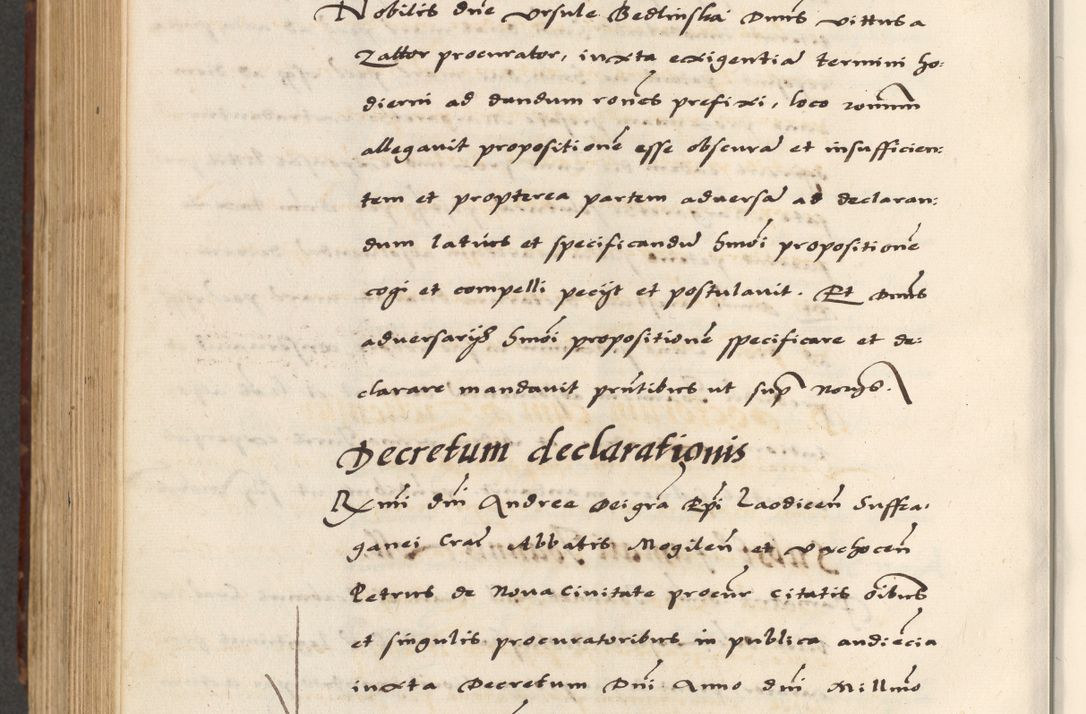 Nobilis dne Ursule Bedlinska Dnus Vittus a
Zator procurator, iuxta exigentia termini ho:
dierni ad dandum rones prefixi, loco ronum
allegavit propositione esse obscura et insufficien:
tem et propterea partem adversa ad declaran:
dum latius et specificandu hmoi propositione
cogi et compelli peciit et postulavit. Et Dnus
adversariis hmoi propositione specificare et de:
clarare mandavit pntibus ut sup
Decretum declarationis
Rxmi dni Andree Dei gra Epi Laodicen Suffra:
ganei Crac Abbatis Mogilen et Vachocen
Petrus de Nova Civitate procur citatis oibus
et singulis procuratoribus in publica audiecia
iuxta Decretum Dni Anno dni Millmo